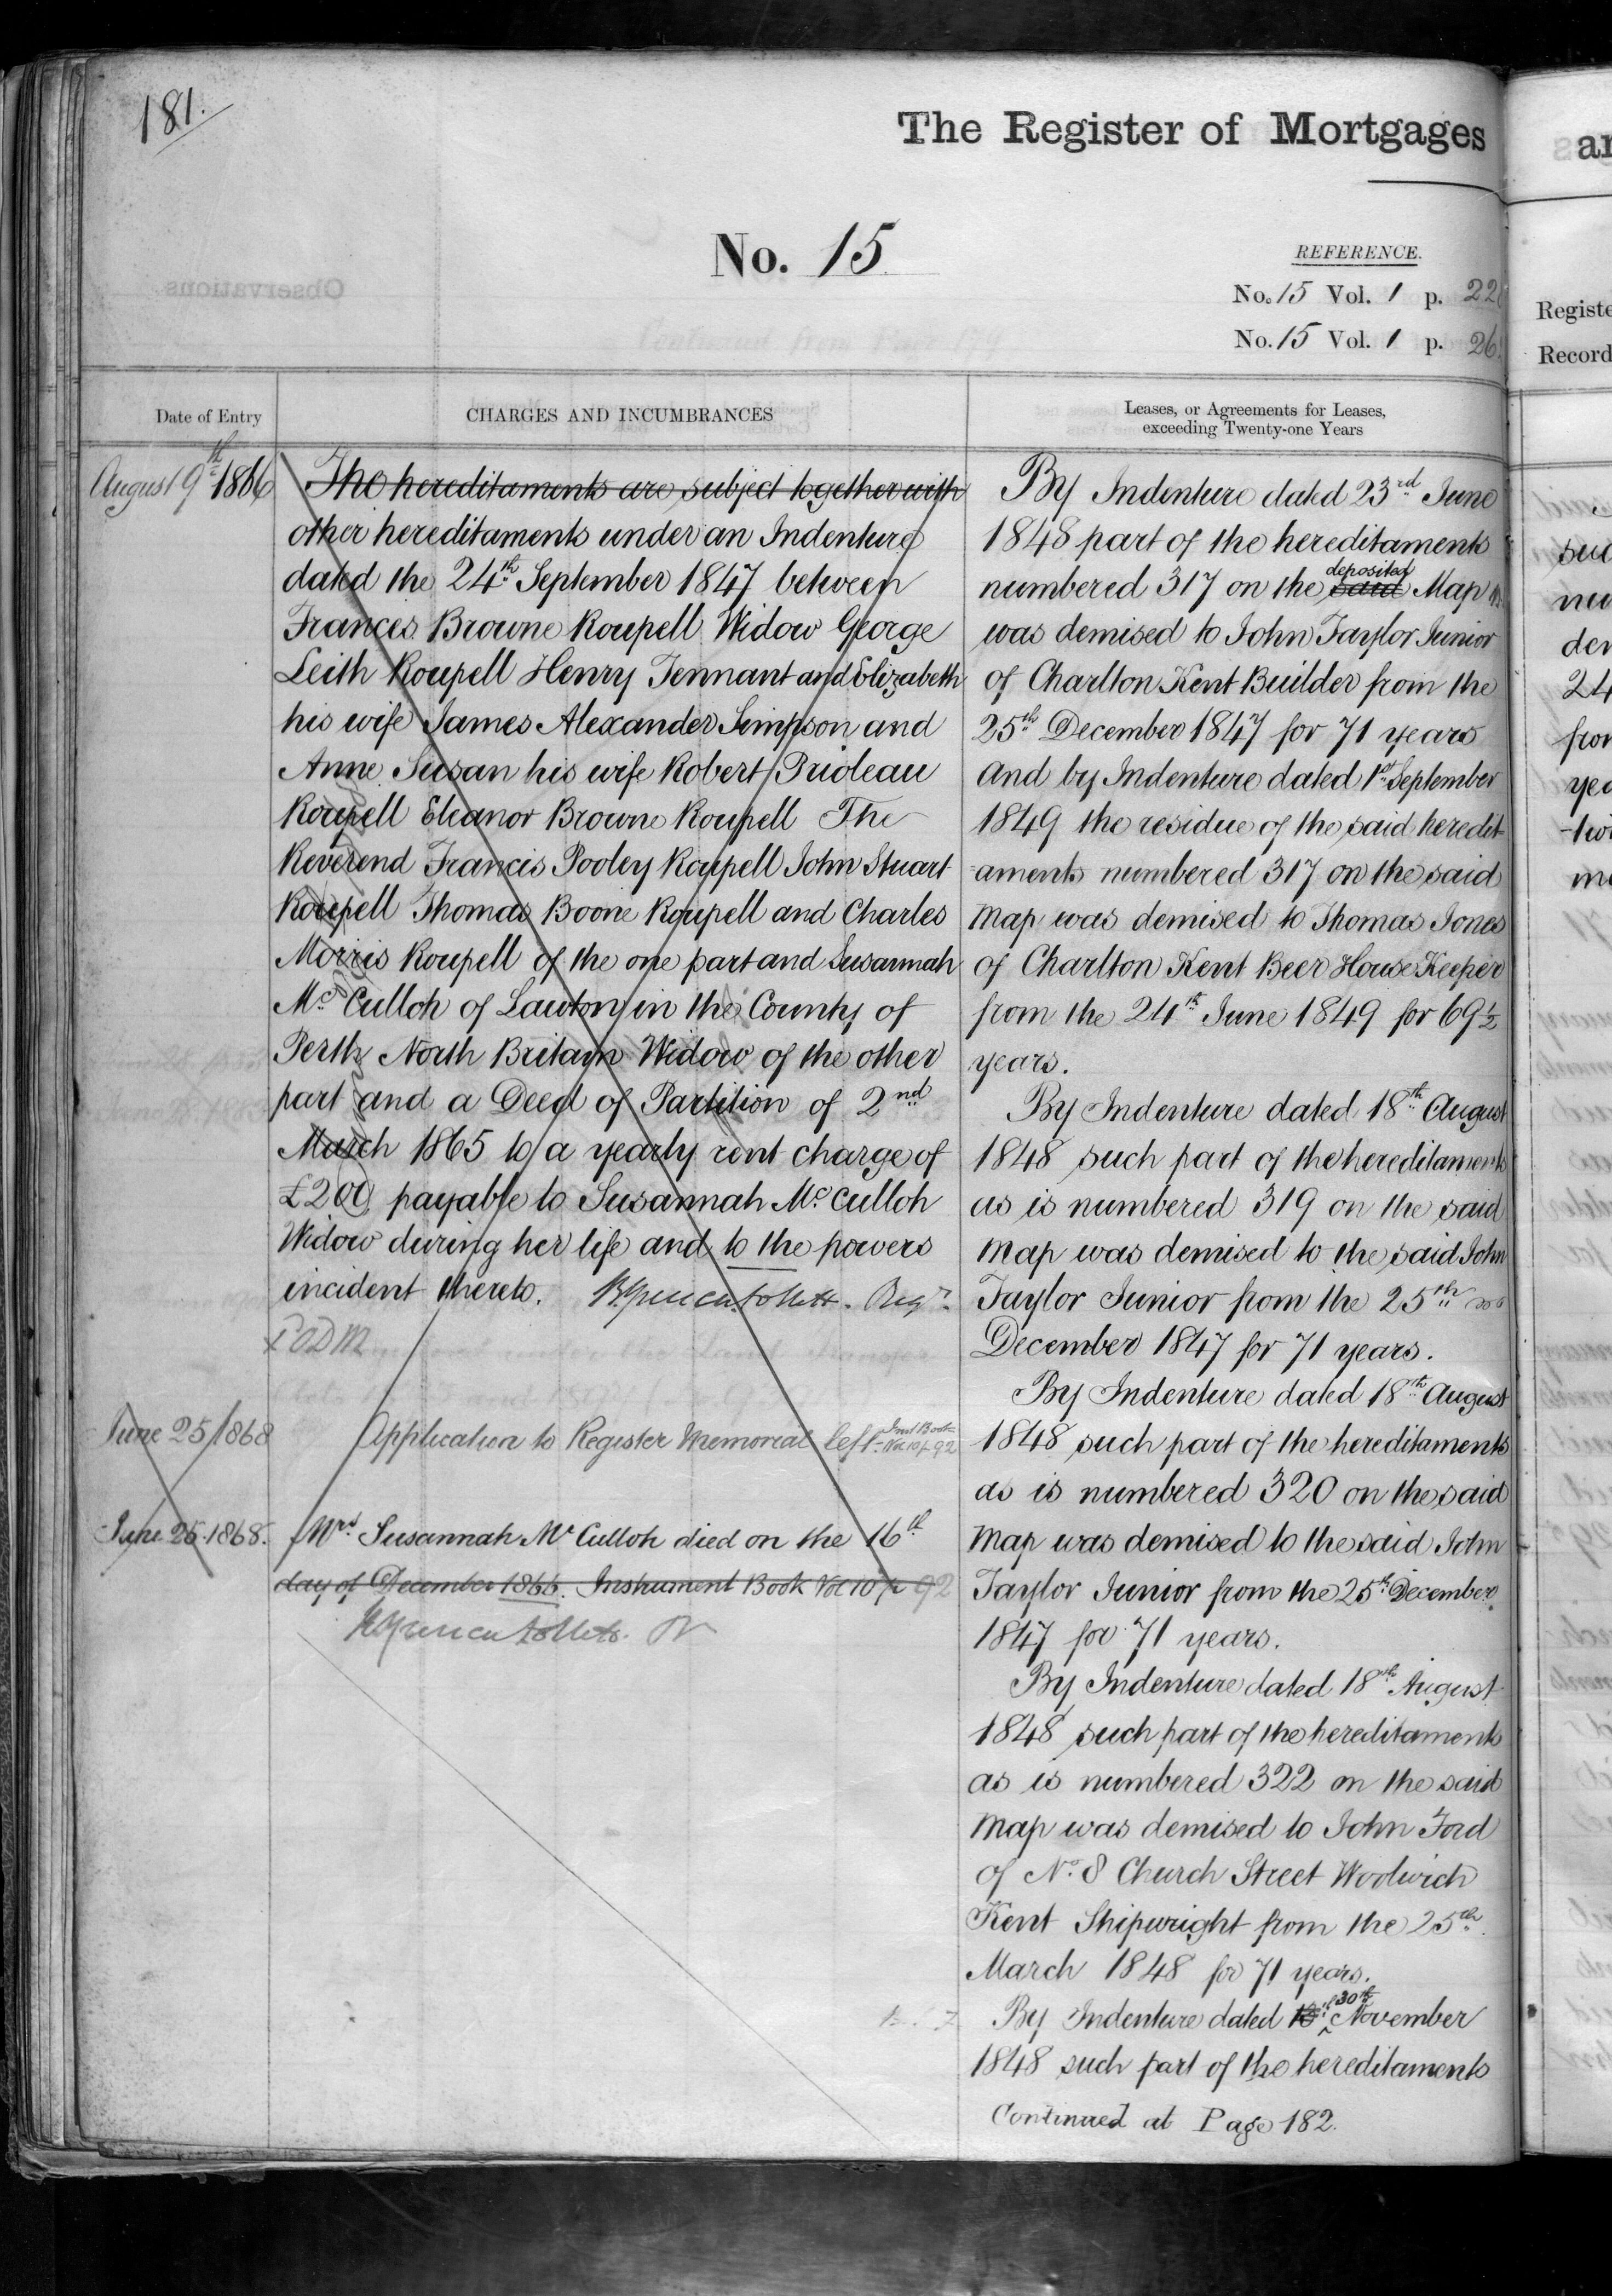 181.
The Register of Mortgages
No. 15
REFERENCE.
No. 15 Vol. 1 p. 22
No. 15 Vol. 1 p. 26
Date of Entry
CHARGES AND INCUMBRANCES
Leases, or Agreements for Leases,
exceeding Twenty-one Years
August 9th 1866
The hereditaments are subject together with
other hereditaments under an Indenture
dated the 24th September 1847 between
Frances Browne Roupell Widow George
Leith Roupell Henry Tennant and Elizabeth
his wife James Alexander Simpson and
Anne Susan his wife Robert Prioleau
Roupell Eleanor Browne Roupell The
Reverend Francis Pooley Roupell John Stuart
Roupell Thomas Boone Roupell and Charles
Morris Roupell of the one part and Susannah
Mc Culloh of Lawton in the County of
Perth North Britain Widow of the other
part and a Deed of Partition of 2nd
March 1865 to a yearly rent charge of
£200 payable to Susannah Mc Culloh
Widow during her life and to the powers
incident thereto.
June 25/1868
Application to Register Memorial left Inst Book Vol 10 p 92
June 25. 1868.
Mrs Susannah Mc Culloh died on the 16th
day of December 1866. Instrument Book Vol 10 p 92
By Indenture dated 23rd June
1848 part of the hereditaments
numbered 317 on the said deposited Map
was demised to John Taylor Junior
of Charlton Kent Builder from the
25th December 1847 for 71 years
and by Indenture dated 1st September
1849 the residue of the said heredit
-aments numbered 317 on the said
Map was demised to Thomas Jones
of Charlton Kent Beer House Keeper
from the 24th June 1849 for 69½
years.
By Indenture dated 18th August
1848 such part of the hereditaments
as is numbered 319 on the said
Map was demised to the said John
Taylor Junior from the 25th
December 1847 for 71 years.
By Indenture dated 18th August
1848 such part of the hereditaments
as is numbered 320 on the said
Map was demised to the said John
Taylor Junior from the 25th December
1847 for 71 years.
By Indenture dated 18th August
1848 such part of the hereditaments
as is numbered 322 on the said
Map was demised to John Ford
of No. 8 Church Street Woolwich
Kent Shipwright from the 25th
March 1848 for 71 years.
By Indenture dated 30th November
1848 such part of the hereditaments
Continued at Page 182.